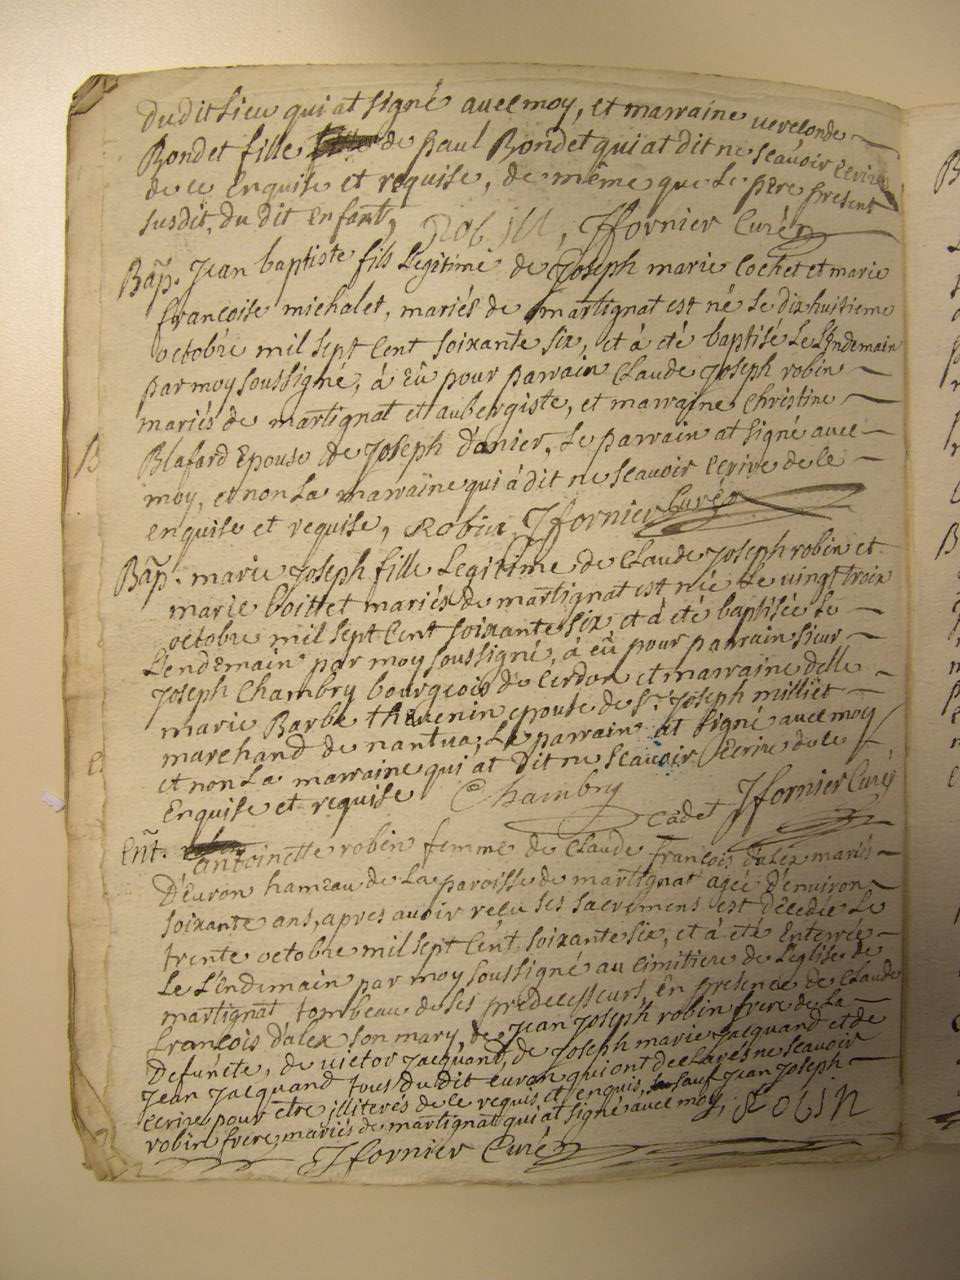 duditlieu qui at signé avec moy, et marraine
Bondet fille de paul Bondet qui at dit ne scavoir ecrire
de ce Enquise et requise, de même que le pere present
susdit, du dit enfant, Robin, Jfornier Curé
Bap. Jean baptiste fils Legitime de Joseph marie Cochet et marie
francoise michalet, mariés de martignat est né Le dix huitieme
octobre mil sept cent soixante six, et à été baptisé Le Lendemain
par moy soussigné, à eû pour parrain Claude Joseph robin
mariés de martignat et aubergiste, et marraine Christine
B
Blafard Epouse de Joseph d'anier, Le parrain at signé avec
moy, et non La marraine qui à dit ne scavoir ecrire de ce
enquise et requise, Robin, Jfornier Curé
Bap. marie Joseph fille Legitime de Claude Joseph robin et
marie Coittet mariés de martignat est née Le vingt troix
octobre mil sept cent soixante six et à été baptisée Le
Lendemain par moy soussigné, à eû pour parrain sieur
Joseph Chambry bourgeois de Cerdon et marraine delle
marie Barbe thevenin epouse de Sr. Joseph milliet
marchand de nantua; Le parrain at signé avec moy
et non La marraine qui at dit ne scavoir ecrire de ce
Enquise et requise Chambry cadet Jfornier Curé
Ent. antoinette robin femme de Claude francois dalex mariés
D'Euron hameau de La paroisse de martignat agée d'environ
soixante ans, apres avoir recu ses sacremens est decedée Le
trente octobre mil sept cent soixante six, et à été Enterrée
Le L'endemain par moy soussigné au cimitiere de L'eglise de
martignat tombeau de ses predecesseurs, En presence de Claude
francois dalex son mary, de Jean Joseph robin frere de La
Defuncte, de victor Jacquand, de Joseph marie Jacquand et de
Jean Jacquand tous du dit euron qui ont declarés ne scavoir
ecrire pour etre illiterés de ce requis et enquis, sauf Jean Joseph
robin frere, mariés de martignat qui at signé avec moy, Robin
Jfornier Curé